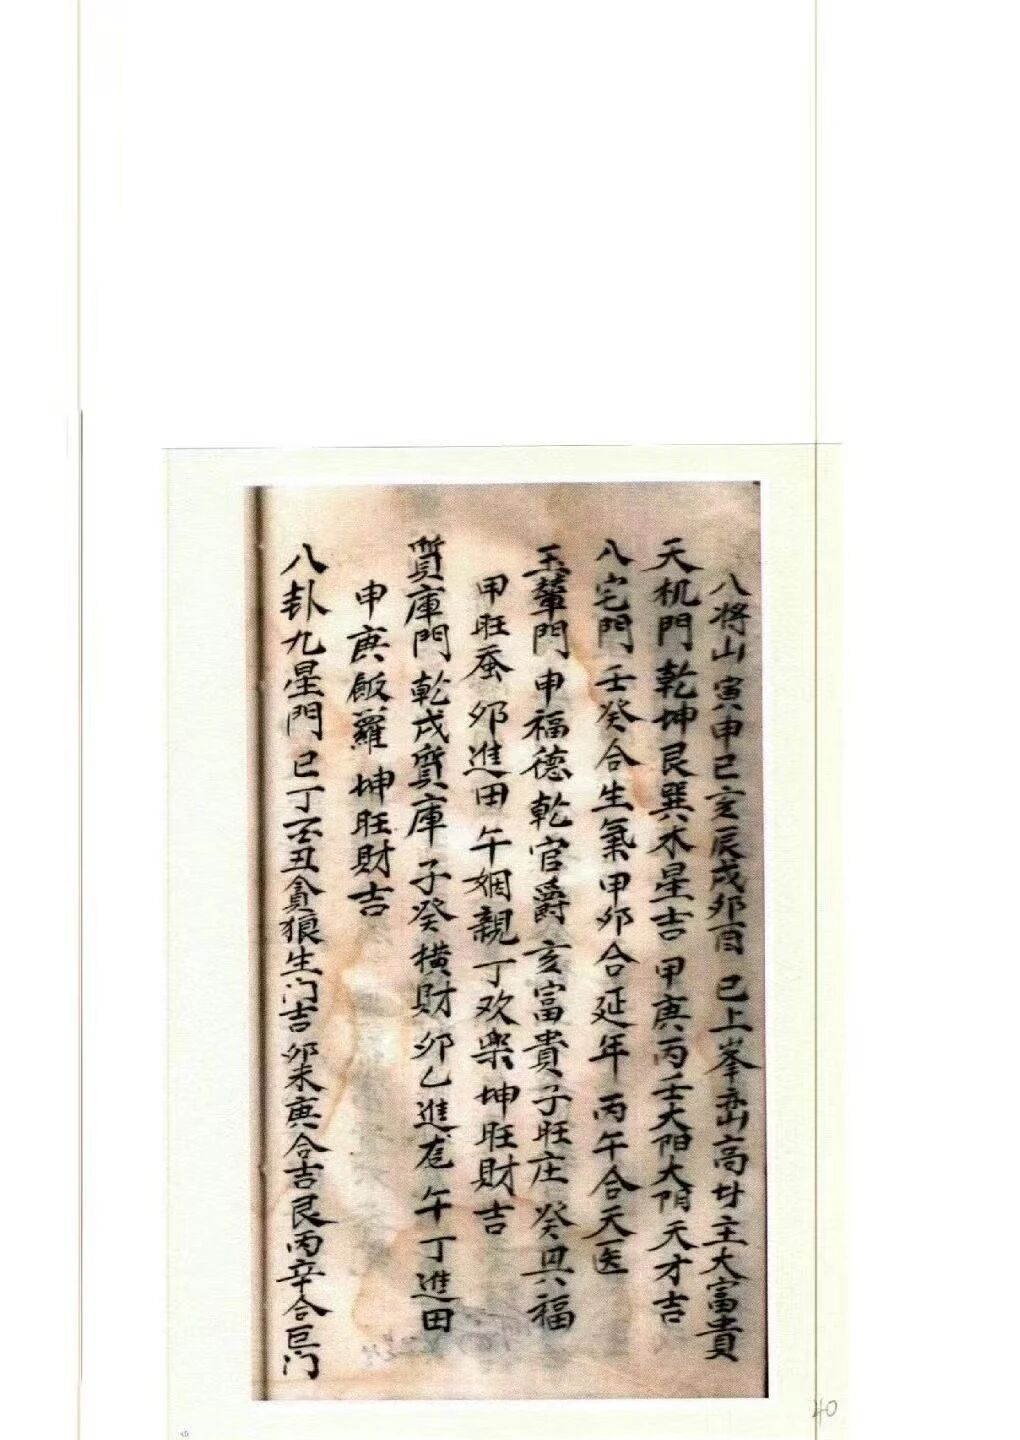 八将山寅申巳亥辰戌卯酉 已上峯峦高大主大富貴
天机門乾坤艮巽木星吉 甲庚丙壬太阳太阴天才吉
八宅門壬癸合生氣甲卯合延年 丙午合天医
玉輦門申福德乾官爵亥富貴子旺庄癸興福
甲旺蚕 卯進田午姻親丁欢樂坤旺財吉
質庫門乾戌質庫 子癸橫財卯乙進 午丁進田
申庚飯籮 坤旺財吉
八卦九星門 巳丁 丑貪狼生门吉 卯未庚合吉艮丙辛合巨门
40